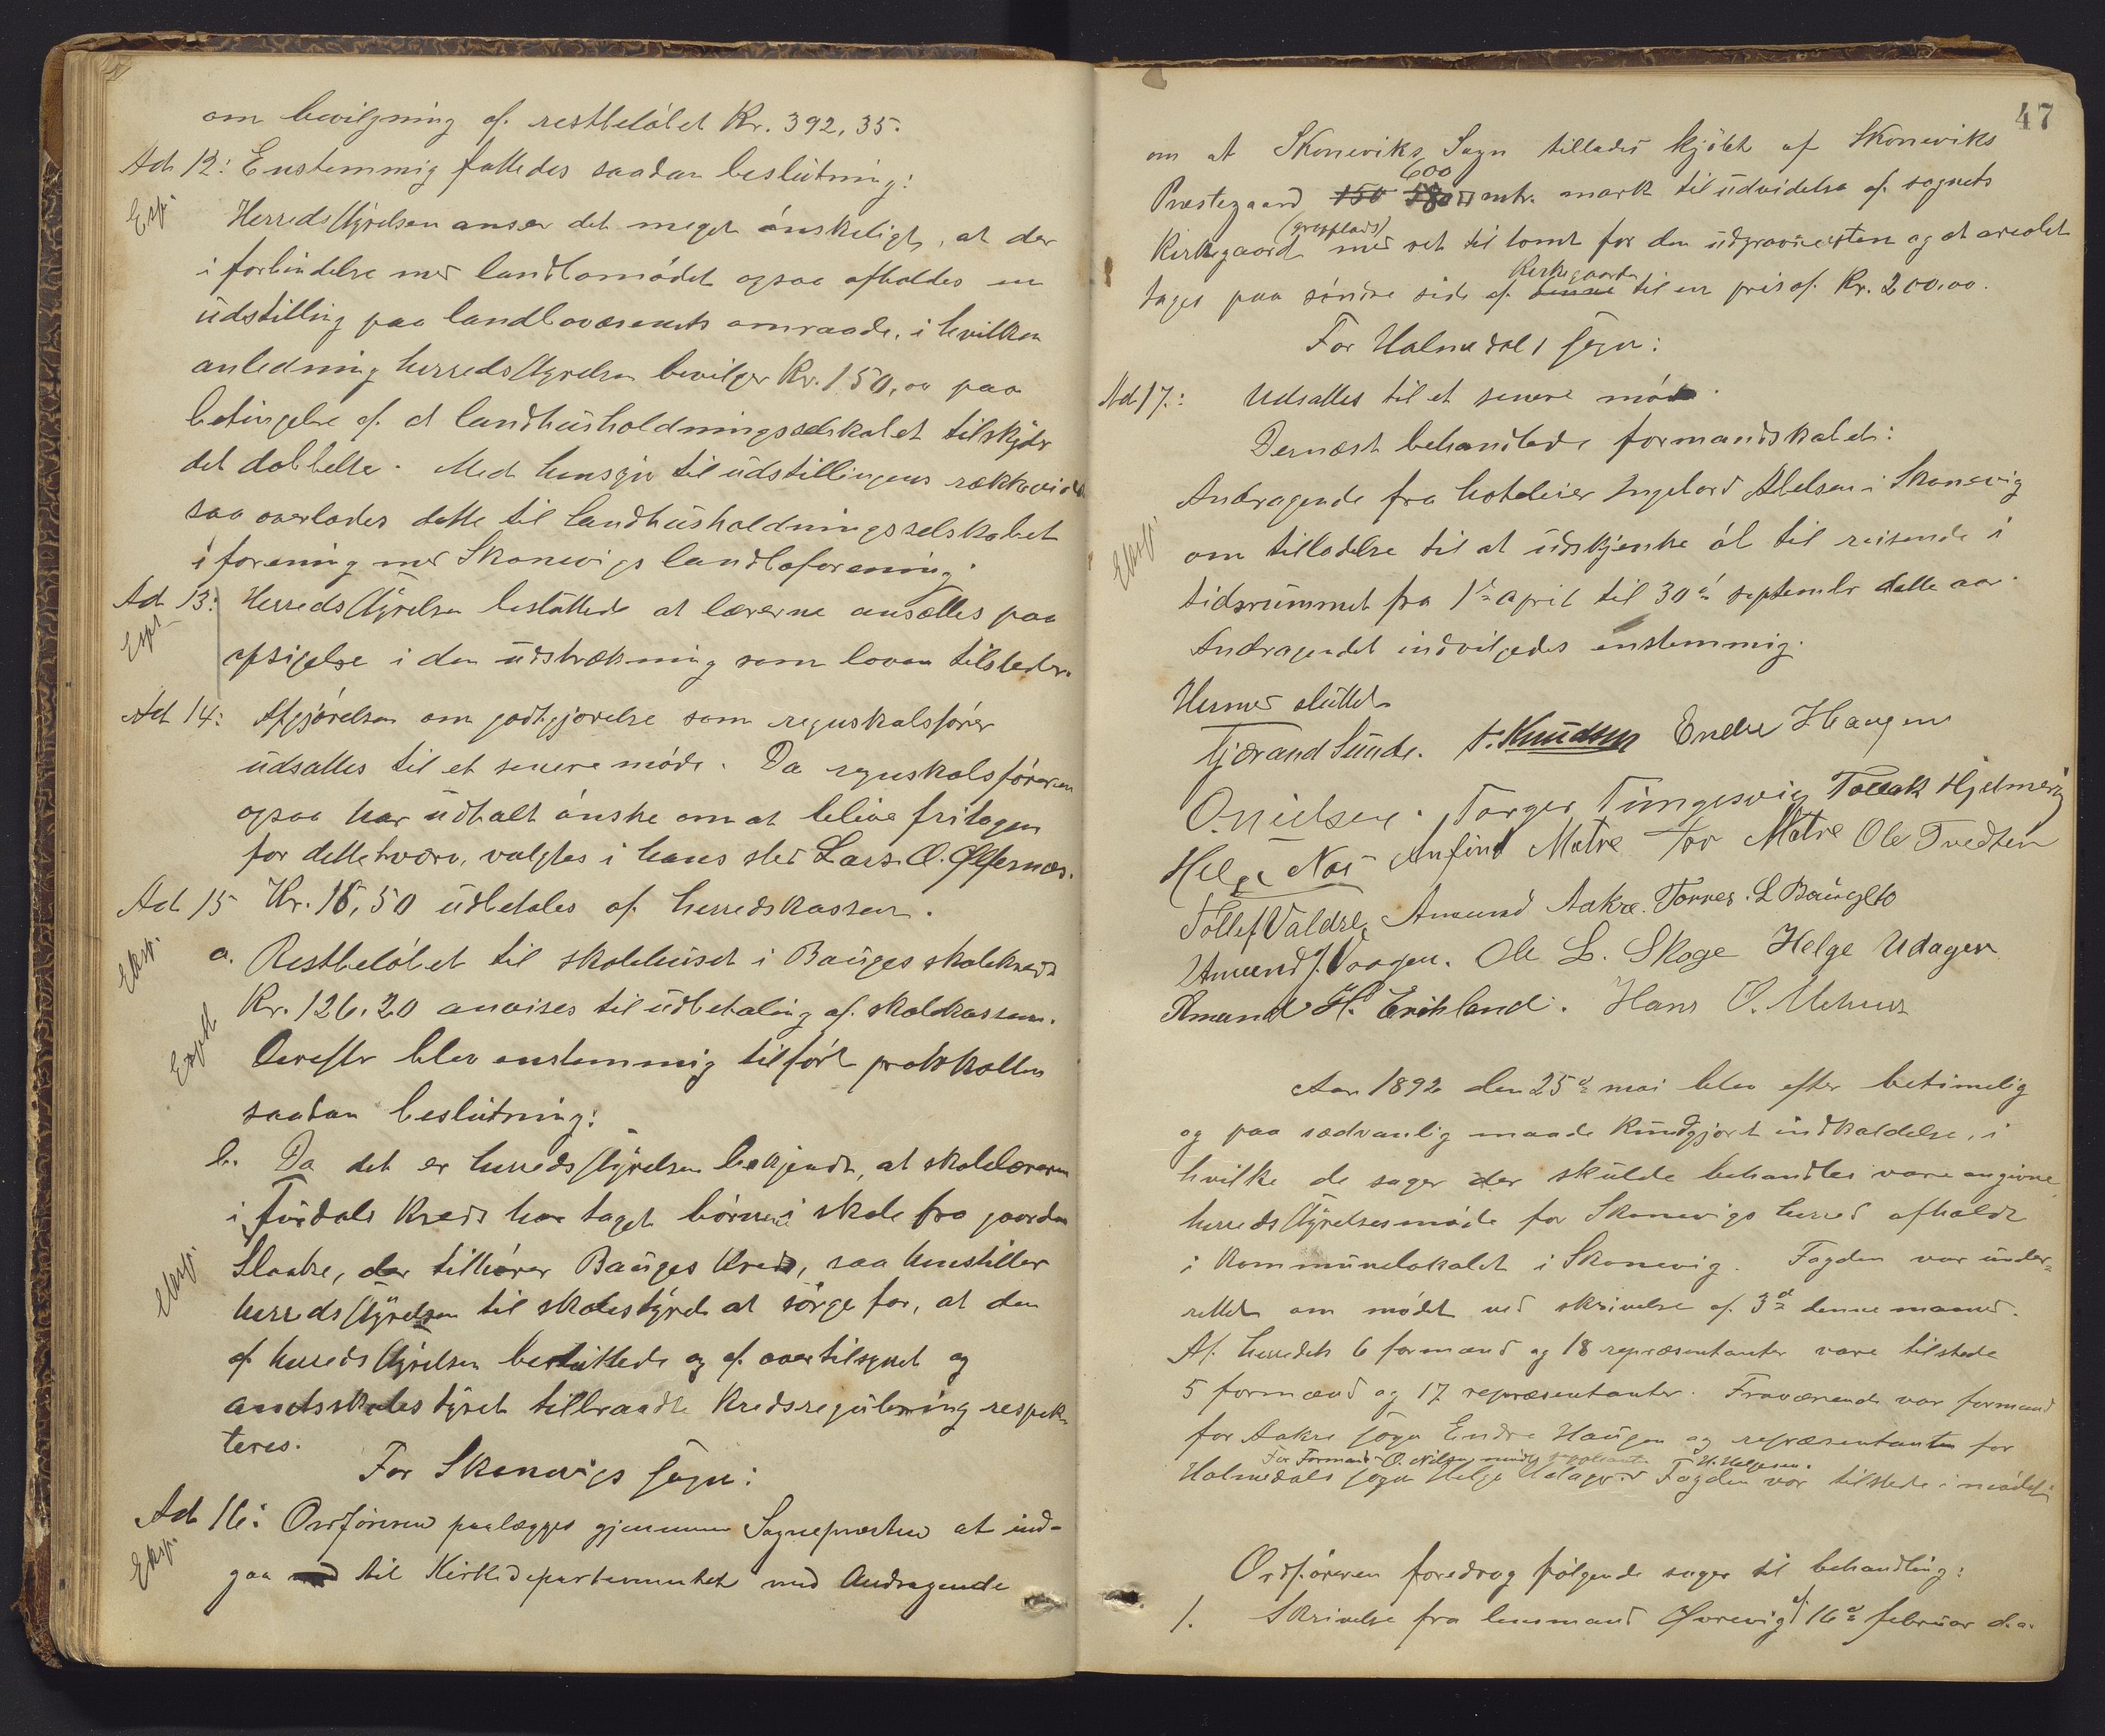 om bevilgning af restbeløbet Kr. 392,35.
Ad 12: Enstemmig fattedes saadan beslutning:
Exp.
Herredsstyrelsen anser det meget ønskeligt, at der
i forbindelse med landbomødet ogsaa afholdes en
udstilling paa landbovæsenets omraade, i hvilken
anledning herredsstyrelsen bevilger Kr. 150,00 paa
betingelse af at landhusholdningsselskabet tilskyder
det dobbelte. Med hensyn til udstillingens rækkevidde
saa overlades dette til landhusholdningsselskabet
i forening med Skonevigs landboforening.
Ad 13: Herredsstyrelsen besluttede at lærerne ansættes paa
Exp.
opsigelse i den udstrækning som loven tilsteder.
Ad 14: Afgjørelsen om godtgjørelse som regnskabsfører
udsattes til et senere møde. Da regnskabsføreren
ogsaa har udtalt ønske om at blive fritagen
for dette hverv, valgtes i hans sted Lars O. Ølfernæs.
Ad 15 Kr. 16,50 udbetales af herredskassen.
Eksp.
a. Restbeløbet til skolehuset i Bauges skolekreds
Kr. 126,20 anvises til udbetaling af skolekassen.
Exped
Derefter blev enstemmig tilført protokollen
saadan beslutning:
b. Da det er herredsstyrelsen bekjendt, at skolelæreren
i Fjurdals Kreds har taget børnene i skole fra gaarden
Slaatte, der tilhører Bauges Kreds, saa henstiller
Eksp.
herredsstyrelsen til skolestyret at sørge for, at den
af herredsstyrelsen besluttede og af overtilsynet og
amtsskolestyret tilraadte Kredsregulering respek-
teres.
For Skonevigs sogn:
Ad 16: Ordføreren paalægges gjennem Sognepresten at ind-
Eksp.
gaa til Kirkedepartementet med Andragende
47
om at Skoneviks Sogn tillades kjøbt af Skoneviks
600
Præstegaard 150 580 □ mtr. mark til udvidelse af sognets
(gravplads)
Kirkegaard med ret til tomt for den og at arealet
Kirkegaarden
tages paa søndre side af denne til en pris af Kr. 200,00.
For Holmedals sogn:
Ad 17: Udsattes til et senere møde.
Dernæst behandlede formandskabet:
Andragende fra hotelier Ingebord Abelsen i Skonevig
Eksp.
om tilladelse til at udskjenke øl til reisende i
tidsrummet fra 1ste april til 30te september dette aar.
Andragendet indvilgedes enstemmig.
Hermed sluttet
Tjærand Sunde. T. Knudsen Endre Haugen
O. Nielsen. Torger Tungesvig Tollak Hjelmevig
Helge Næs Anfind Matre Tor Matre Ole Tvedten
Tollef Valdre, Amund Aakre. Torres. L Baugsto
Amund J. Vaagen. Ole L. Skoge Helge Udagen
Amund H. Eriksland. Hans O. Mehus
Aar 1892 den 25de mai blev efter betimelig
og paa sædvanlig maade kundgjort indkaldelse, i
hvilke de sager der skulde behandles vare angivne,
herredsstyrelsesmøde for Skonevigs herred afholdt
i Kommunelokalet i Skonevig. Fogden var under-
rettet om mødet ved skrivelse af 3de denne maaned.
Af herredets 6 formænd og 18 repræsentanter vare tilstede
5 formænd og 17 repræsentanter. Fraværende var formand
for Aakre sogn Endre Haugen og repræsentanten for
For Formand O. Nilsen mødte suppleanten H. Helgesen.
Holmedals sogn Helge Udagen. Fogden var tilstede i mødet.
Ordføreren foredrog følgende sager til behandling:
1. Skrivelse fra lensmand Øvrevig af 16de februar d.a.